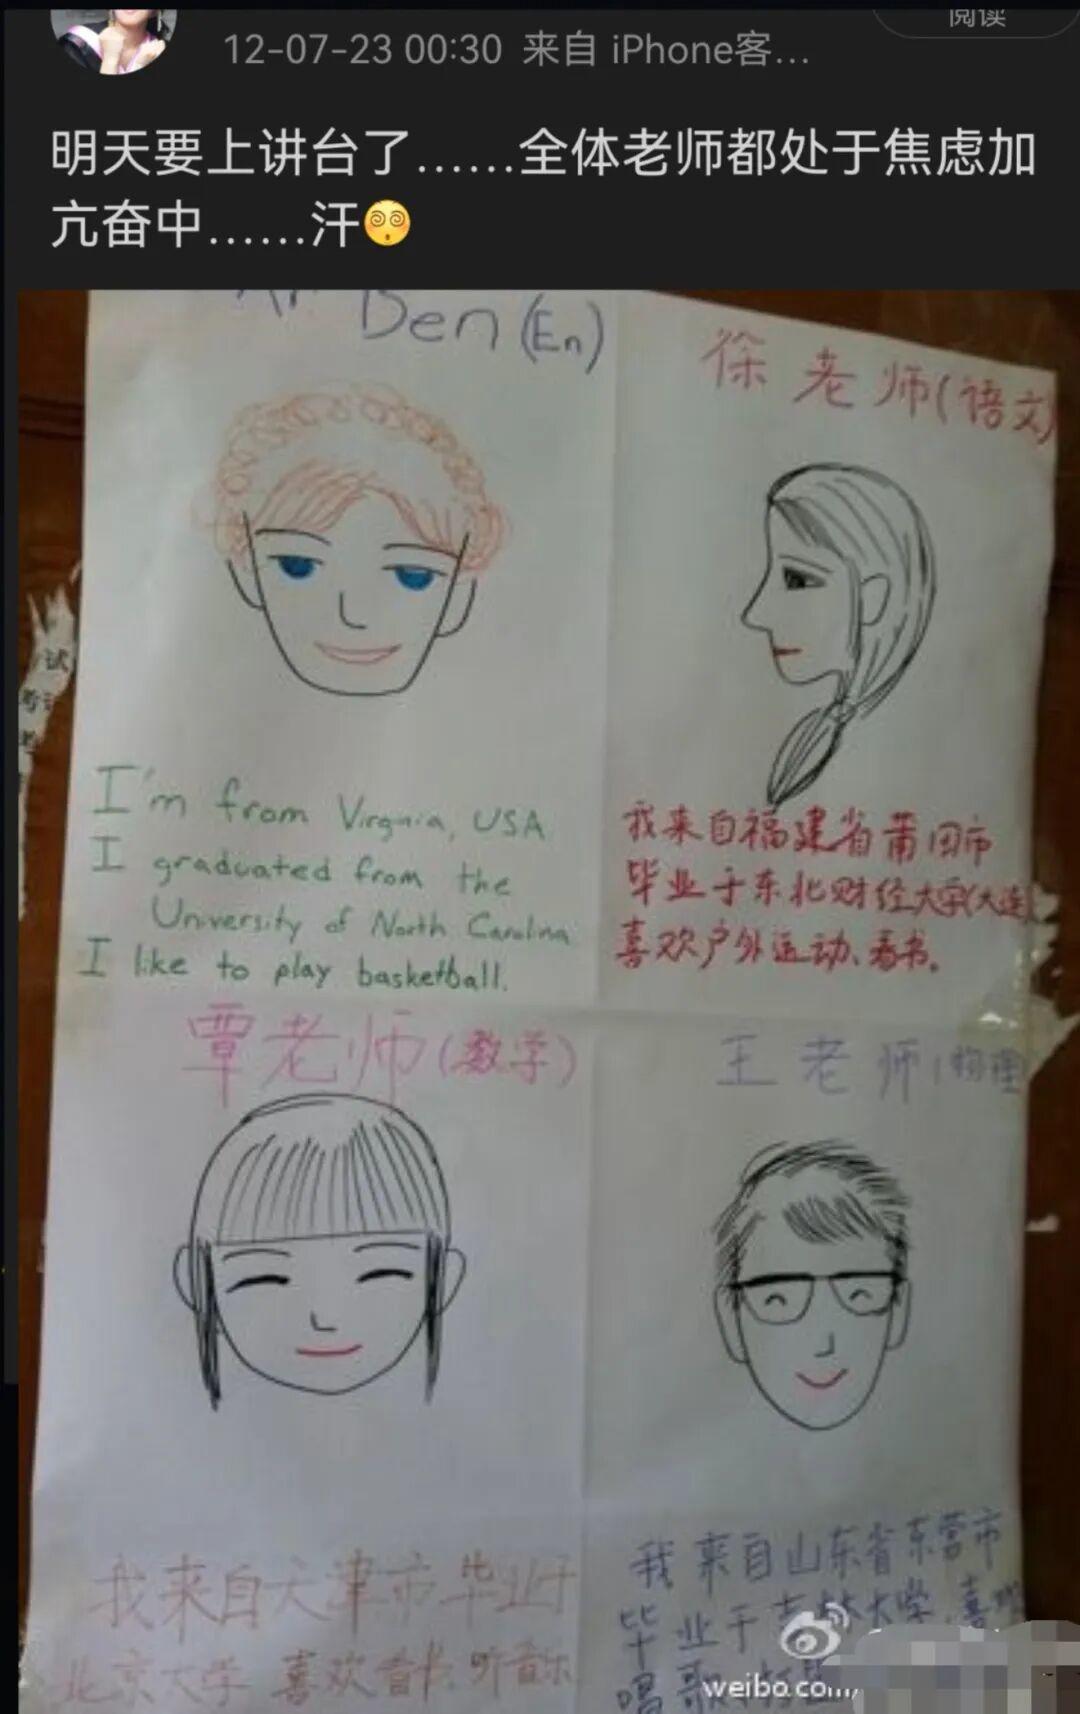 阅读
12-07-23 00:30 来自 iPhone客...
明天要上讲台了……全体老师都处于焦虑加
亢奋中……汗
Ben (En)
I'm from Virginia, USA
I graduated from the
University of North Carolina
I like to play basketball.
徐老师(语文)
我来自福建省莆田市
毕业于东北财经大学(大连)
喜欢户外运动、看书。
覃老师(数学)
我来自天津市毕业于
北京大学 喜欢看书、听音乐
王老师(物理
我来自山东省东营市
毕业于吉林大学,喜欢
唱歌
试
考试
考
weibo.com/